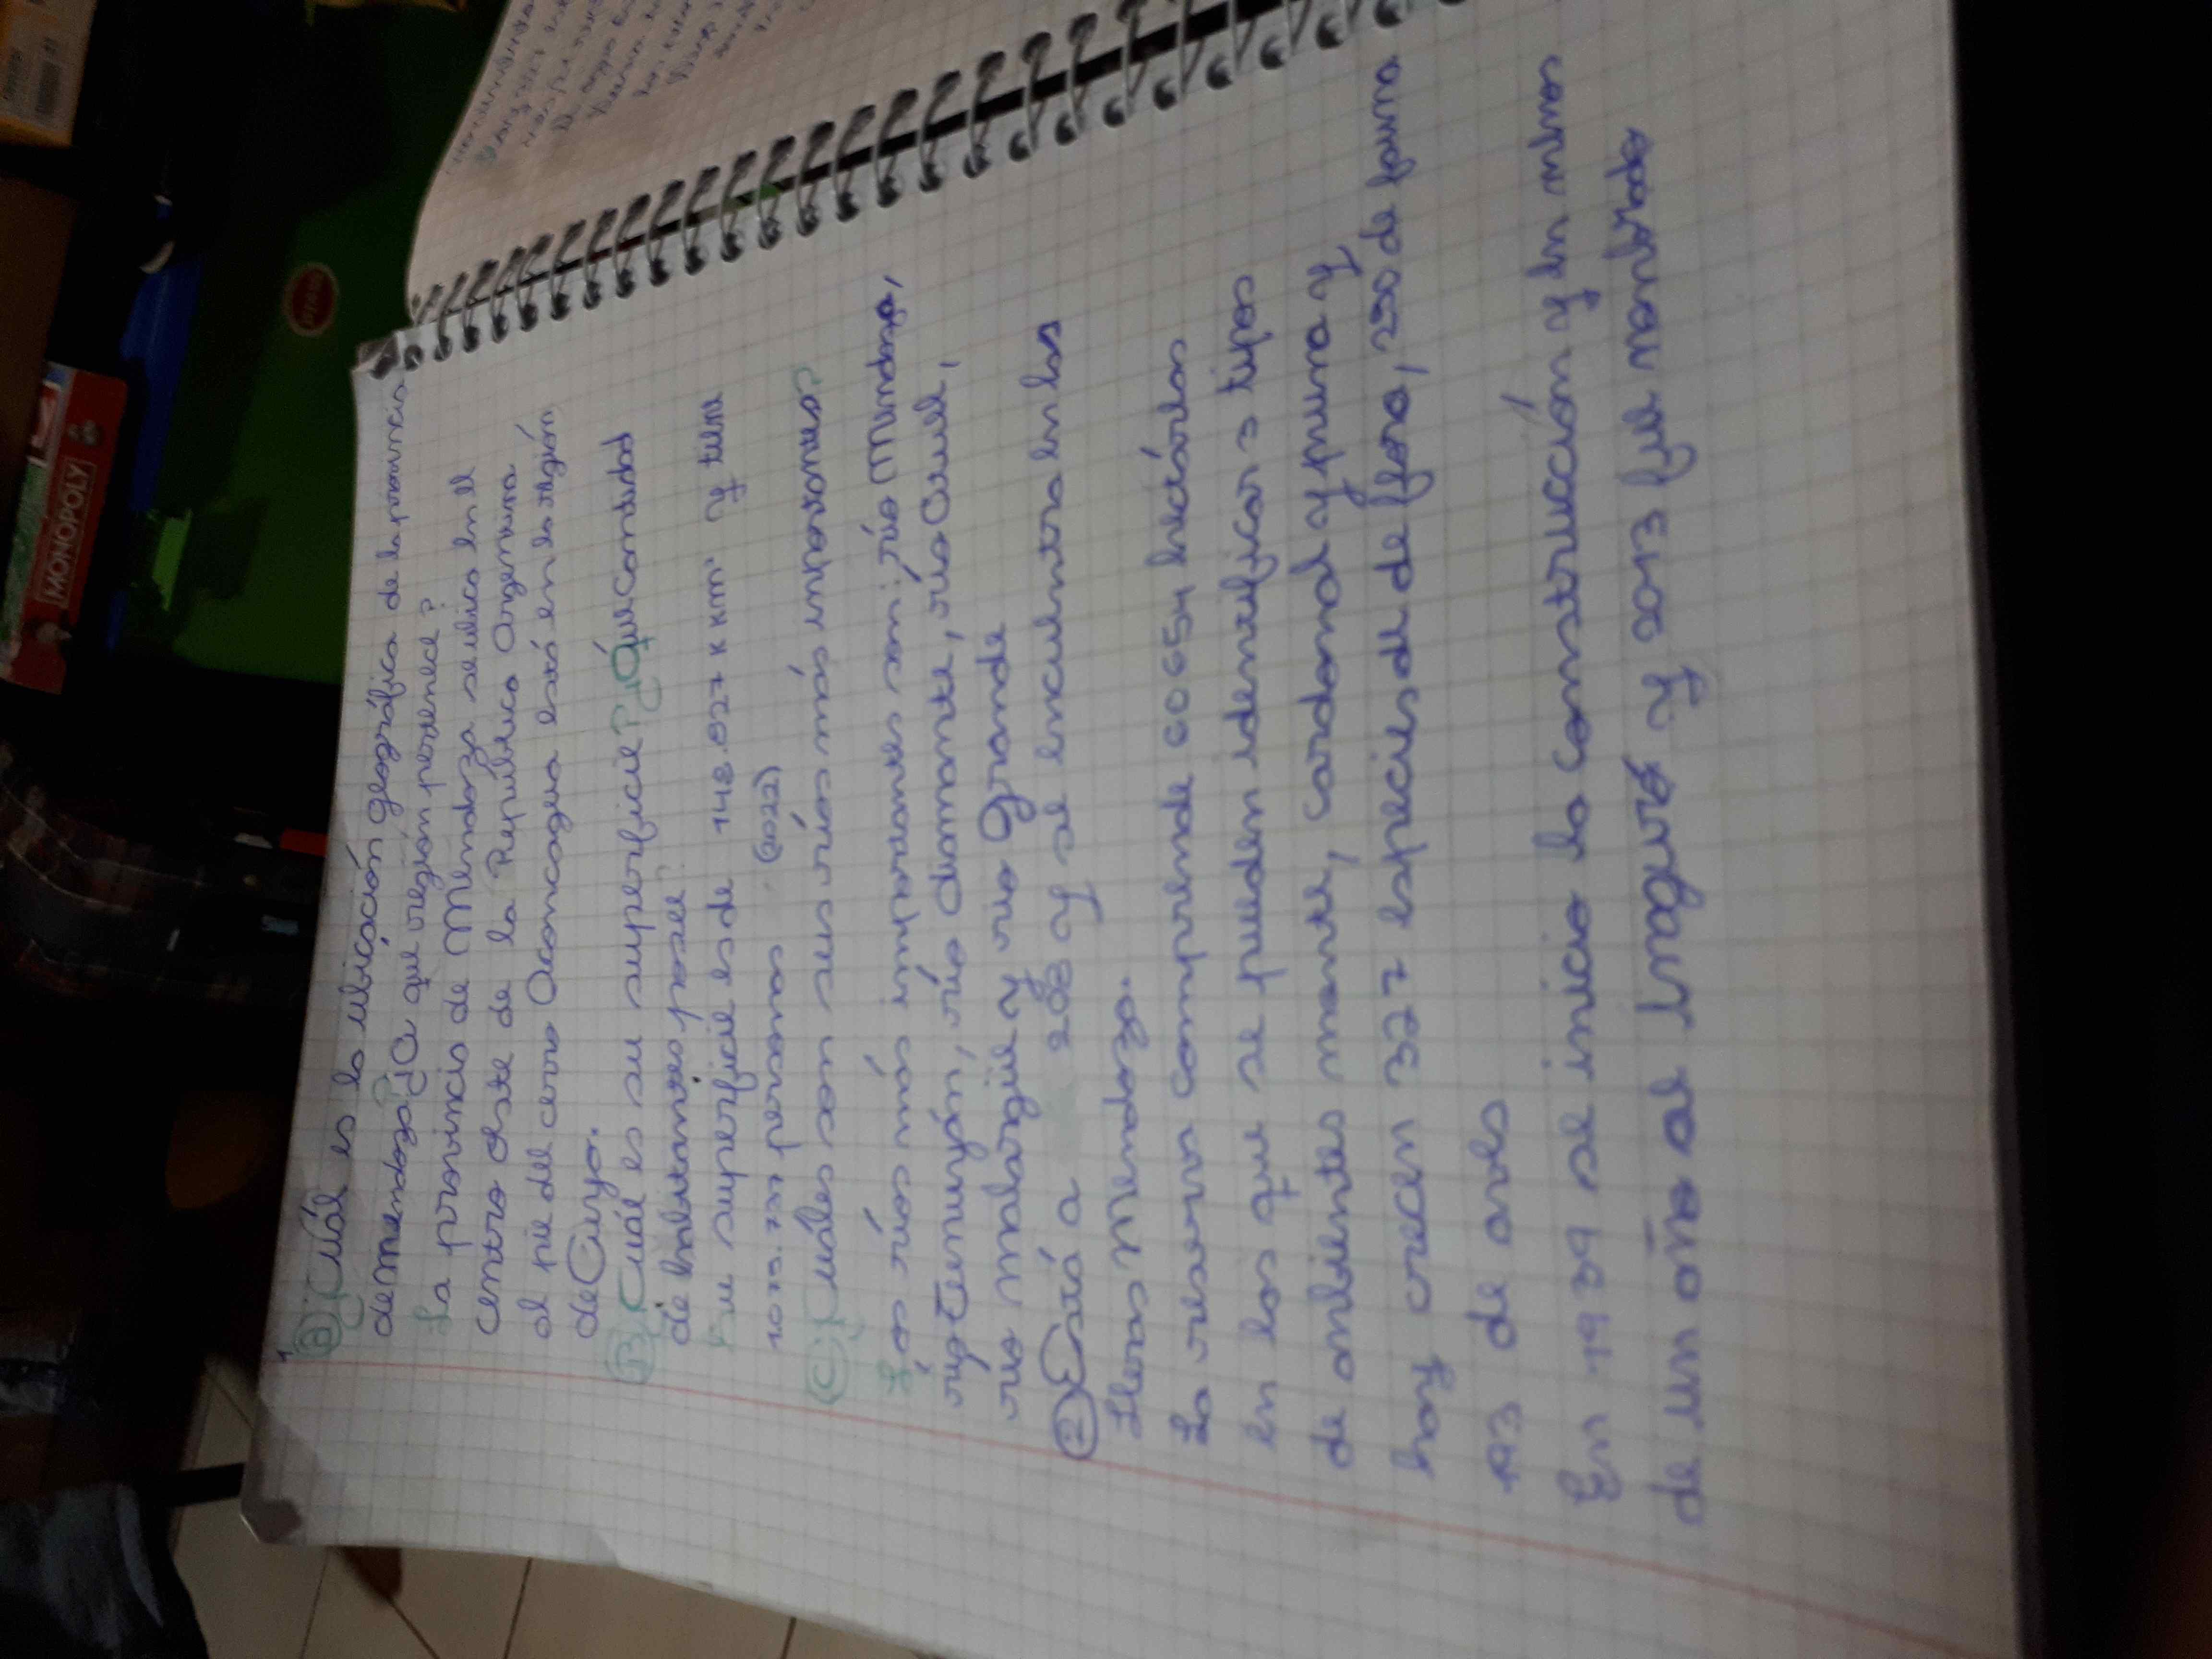 1
a) ¿Cuál es la ubicación geográfica de la provincia
de mendoza? ¿A que región pertenece?
La provincia de Mendoza se ubica en el
centro oeste de la República Argentina
al pie del cerro Aconcagua está en la región
de Cuyo.
B) ¿Cuál es su superficie? ¿Qué cantidad
de habitantes posee?
Su superficie es de 148.827 k km² y tiene
personas (2022)
C) ¿Cuáles son sus ríos más importantes?
Los ríos más importantes son: río Mendoza,
río Tunuyán, río diamante, río Atuel,
río malargüe y río Grande
2) Está a 208 y se encuentra en las
Heras Mendoza.
La reserva comprende 60654 hectáreas
en las que se pueden identificar 3 tipos
de ambientes monte, cardonal y puna y
hay crecen 327 especies de de flora, 250 de fauna
193 de aves
En 1939 se inicio la construcción y en menos
de un año al inaguró y 2013 fue nombrado
MONOPOLY